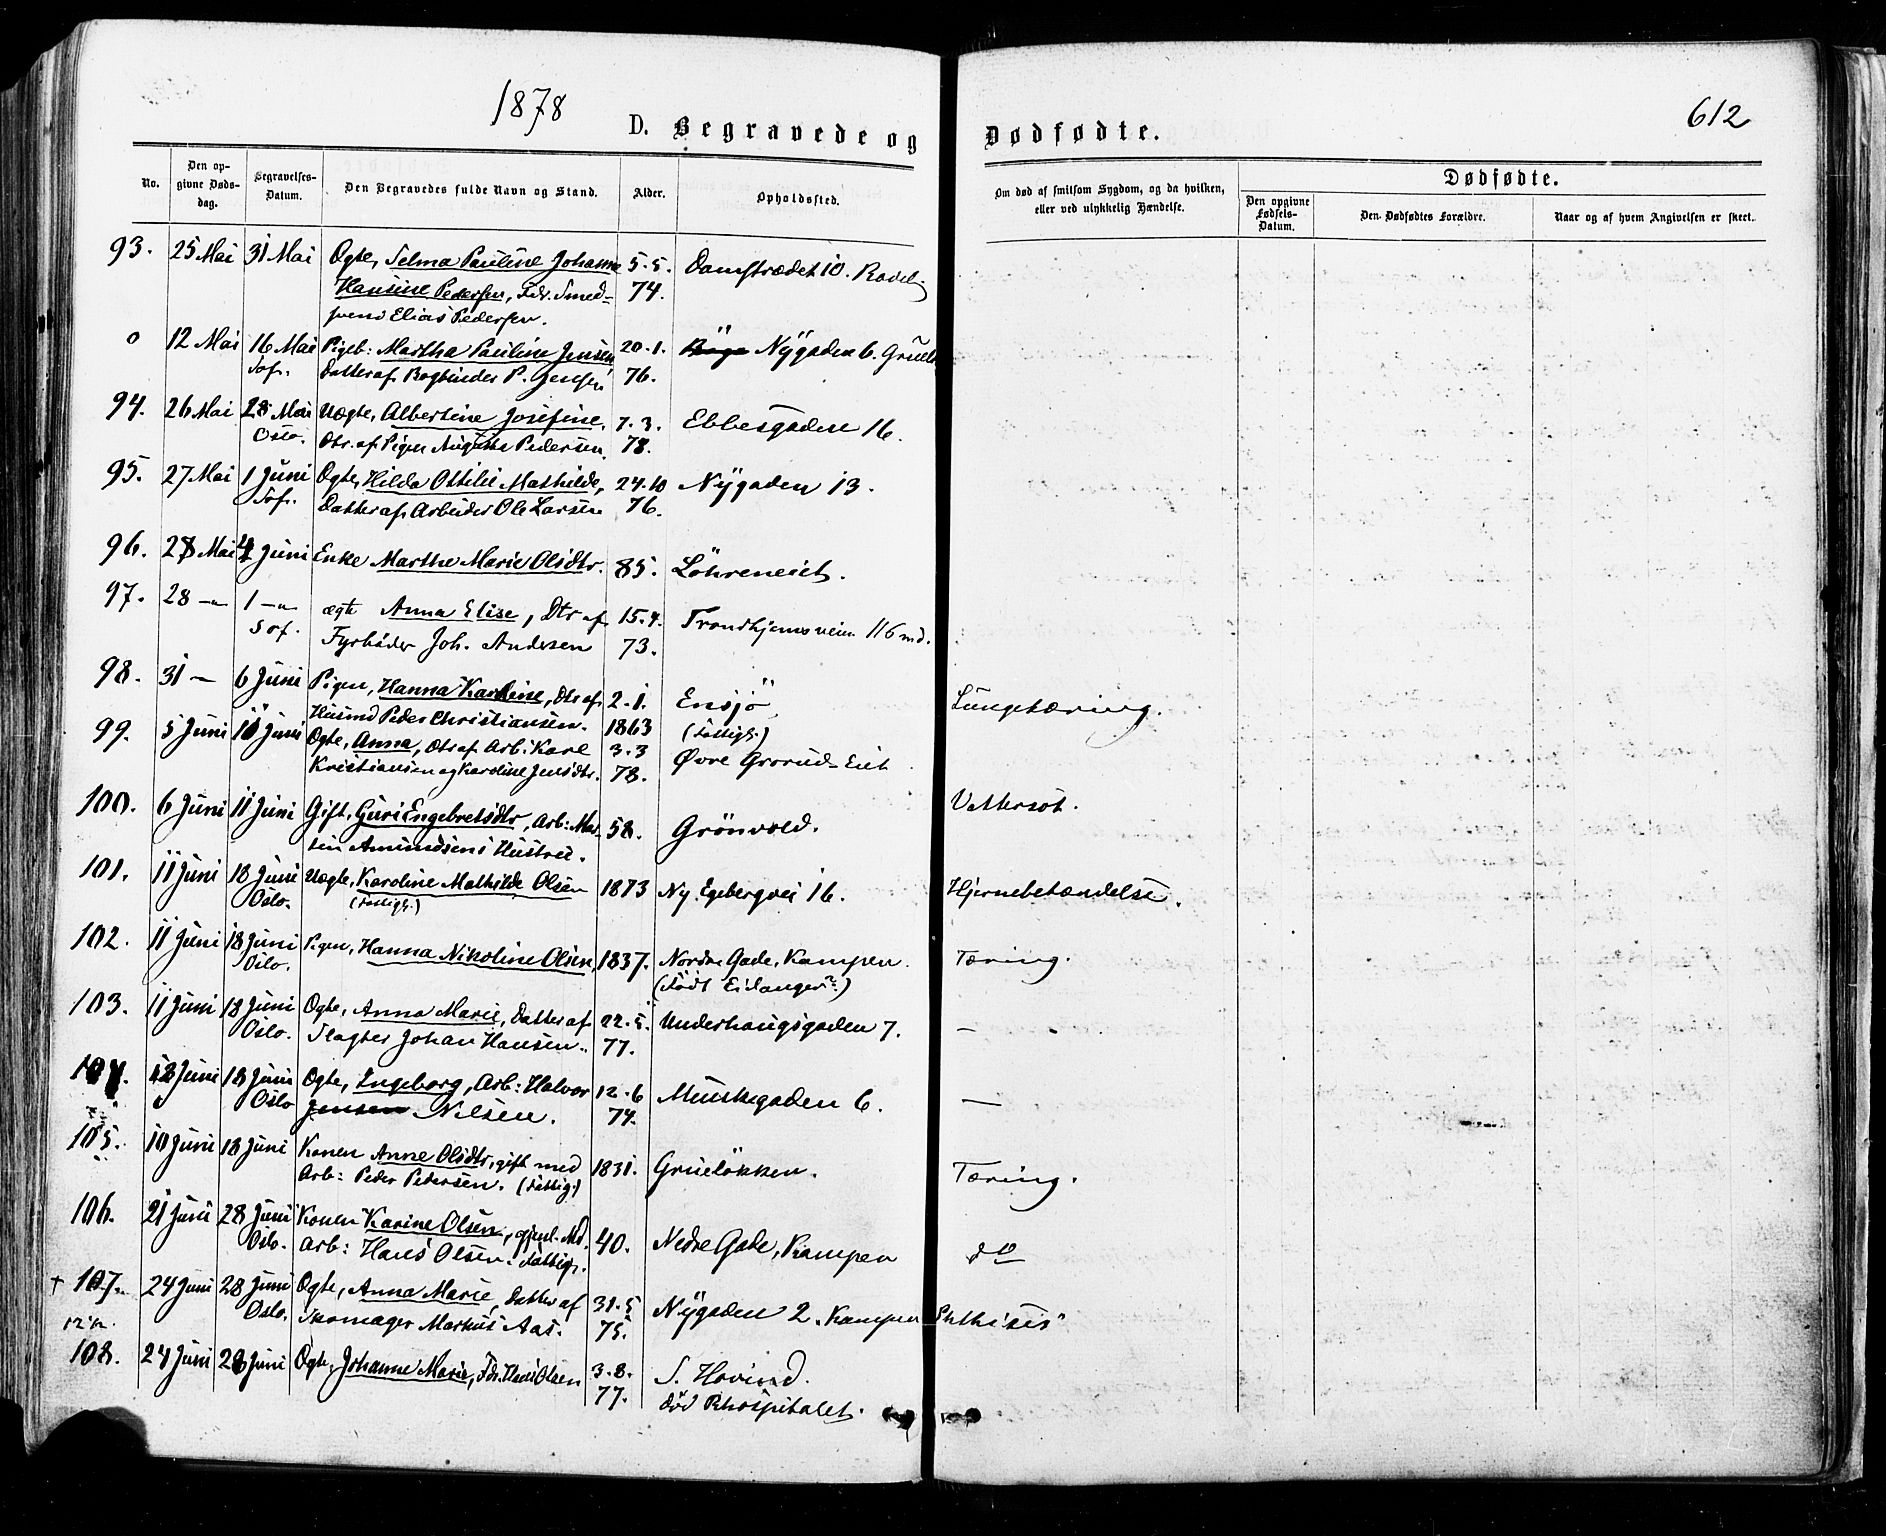 1878
612
D. Begravede og Dødfødte.
No.
Den opgivne Dødsdag.
Begravelses-Datum.
Den Begravedes fulde Navn og Stand.
Alder.
Opholdssted.
Om død af smitsom Sygdom, og da hvilken, eller ved ulykkelig Hændelse.
Dødfødte.
Den opgivne Fødsels-Datum.
Den Dødfødtes Forældre.
Naar og af hvem Angivelsen er skeet.
93. 25 Mai 31 Mai Ægte, Selma Pauline Johanne 5.5. Damstrædet 10.
Hansine Pedersen, Fdr. Smed- 74.
svend Elias Pedersen.
0 12 Mai 16 Mai Pigeb: Martha Pauline Jensen 20.1. Nÿgaden 6.
Sof. Datter af Bogbinder P. Jensen 76.
94. 26 Mai 28 Mai Uægte, Albertine Josefine, 7.3. Ebbesgaden 16.
Oslo. Dtr. af Pigen Augusta Pedersen. 78.
95. 27 Mai 1 Juni Ægte, Hilda Ottilie Mathilde, 24.10 Nÿgaden 13.
Sof. Datter af Arbeider Ole Larsen 76.
96. 27 Mai 4 Juni Enke Marthe Marie Olsdtr. 85. Löhreneiet.
97. 28 — 1 — ægte Anna Elise, Dtr af 15.4. Trondhjemsveien 116
Sof. Fyrbøder Joh. Andersen 73.
98. 31 — 6 Juni Pigen, Hanna Karoline, Dtr af 2.1. Ensjö Lungetæring.
Husmd Peder Christiansen. 1863 (Fattigk.)
99. 5 Juni 11 Juni Ægte, Anna, Dtr af Arb: Karl 3.3 Øvre Grorud-Eiet
Kristiansen og Karoline Jensdtr. 78.
100. 6 Juni 11 Juni Gift, Guri Engebretsdtr, Arb: Mar- 58. Grönvold. Vattersot.
tin Amundsens Hustru.
101. 11 Juni 18 Juni Uægte, Karoline Mathilde Olsen 1873 Ny. Egebergvei 16. Hjernebetændelse.
Oslo. (Fattigk.)
102. 11 Juni 18 Juni Pigen, Hanna Nikoline Olsen, 1837. Nordre Gade, Kampen. Tæring.
Oslo. (Född Eidanger?)
103. 11 Juni 18 Juni Ægte, Anna Marie, Datter af 22.5. Underhaugsgaden 7. —
Oslo. Slagter Johan Hansen. 77.
104. 12 Juni 18 Juni Ægte, Ingeborg, Arb: Halvor 12.6 Munkegaden 6. —
Oslo Jensen Nilsen. 74.
105. 10 Juni 18 Juni Konen Anne Olsdtr, gift med 1831. Gruelökken. Tæring.
Arb: Peder Pedersen. (Fattig.)
106. 21 Juni 28 Juni Konen Karine Olsen, 40. Nedre Gade, Kampen do
Oslo. Arb: Hans Olsen. Fattigv.
† 107. 24 Juni 28 Juni Ægte, Anna Marie, Datter af 31.5 Nÿgaden 2. Kampen Phthisis"
Oslo. Skomager Markus Aas. 75.
108. 24 Juni 28 Juni Ægte, Johanne Marie, Fdr. Hans Olsen 3.8. S. Hovind.
77. död Rhospitalet.